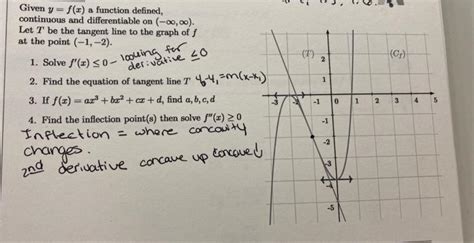 Given y = f(x) a function defined,
continuous and differentiable on (−∞, ∞).
Let T be the tangent line to the graph of f
at the point (−1, −2).
1. Solve f′(x) ≤ 0 – looking for
derivative ≤0
2. Find the equation of tangent line T y-y₁=m(x-x₁)
3. If f(x) = ax³ + bx² + cx + d, find a, b, c, d
4. Find the inflection point(s) then solve f″(x) ≥ 0
Inflection = where concavity
changes.
2nd derivative concave up
(T) 2 (C_f)
1
-3 -2 -1 0 1 2 3 4 5
-1
-2
-3
-4
-5